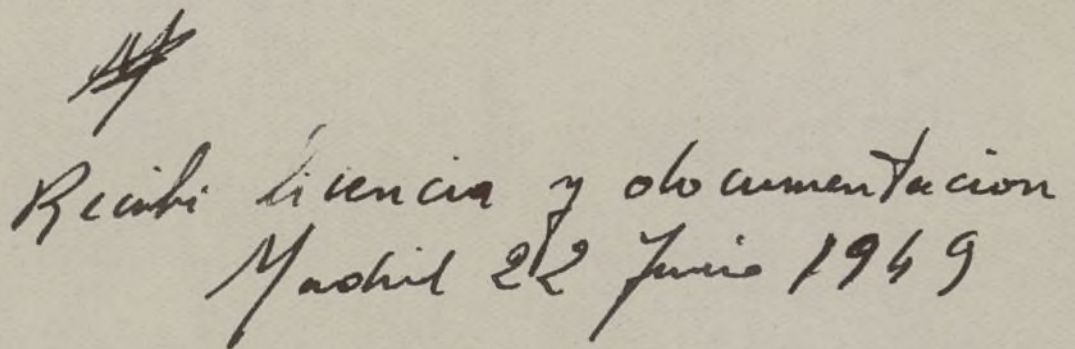 Recibi licencia y documentacion
Madrid 22 Junio 1949